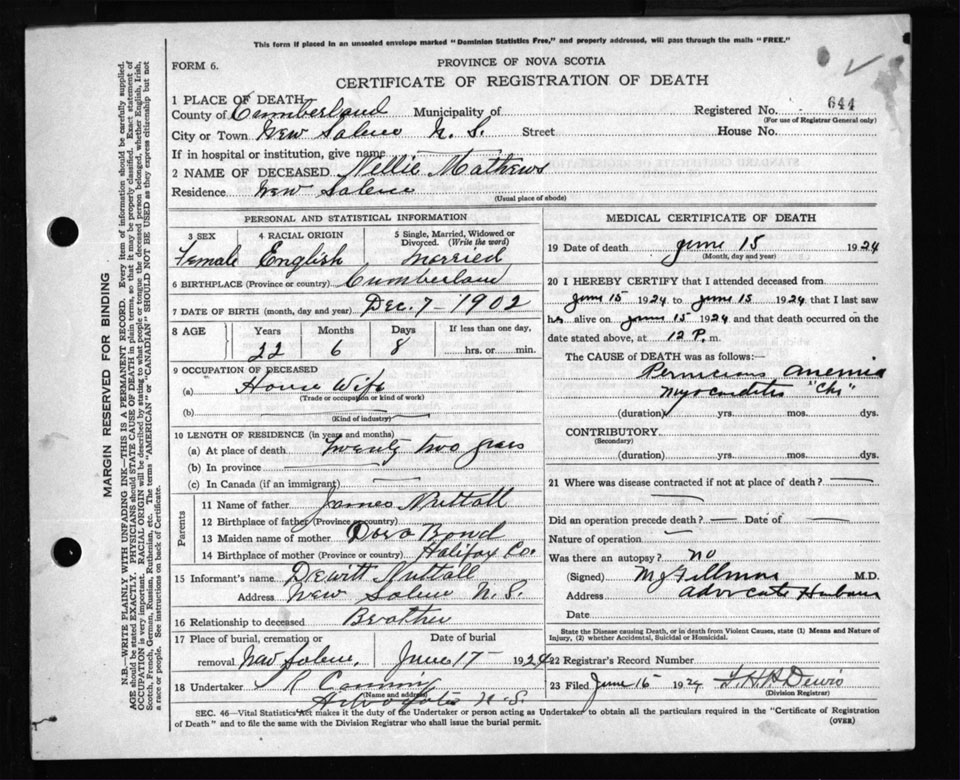 This form if placed in an unsealed envelope marked "Dominion Statistics Free," and properly addressed, will pass through the mails "FREE."
FORM 6.
PROVINCE OF NOVA SCOTIA
CERTIFICATE OF REGISTRATION OF DEATH
1 PLACE OF DEATH
County of Cumberland Municipality of Registered No. 644
(For use of Registrar General only)
City or Town New Salem N. S. Street House No.
If in hospital or institution, give name
2 NAME OF DECEASED Nellie Mathews
Residence New Salem
(Usual place of abode)
PERSONAL AND STATISTICAL INFORMATION
3 SEX 4 RACIAL ORIGIN 5 Single, Married, Widowed or Divorced. (Write the word)
Female English Merried
6 BIRTHPLACE (Province or country) Cumberland
7 DATE OF BIRTH (month, day and year) Dec. 7 - 1902
8 AGE Years Months Days If less than one day,
22 6 8 hrs. or min.
9 OCCUPATION OF DECEASED
(a) House Wife
(Trade or occupation or kind of work)
(b)
(Kind of industry)
10 LENGTH OF RESIDENCE (in years and months)
(a) At place of death twenty two years
(b) In province
(c) In Canada (if an immigrant)
Parents
11 Name of father James Nuttall
12 Birthplace of father (Province or country)
13 Maiden name of mother Dora Bond
14 Birthplace of mother (Province or country) Halifax Co.
15 Informant's name Dewitt Nuttall
Address New Salem N. S.
16 Relationship to deceased Brother
17 Place of burial, cremation or Date of burial
removal New Salem. June 17 - 1924
18 Undertaker
(Name and address)
Advocate N. S.
MEDICAL CERTIFICATE OF DEATH
19 Date of death June 15 1924
(Month, day and year)
20 I HEREBY CERTIFY that I attended deceased from
June 15 1924 to June 15 1924 that I last saw
her alive on June 15 1924 and that death occurred on the
date stated above, at 12 P. m.
The CAUSE of DEATH was as follows:
Pernicious Anemia
Myocarditis "Chr"
(duration) yrs. mos. dys.
CONTRIBUTORY
(Secondary)
(duration) yrs. mos. dys.
21 Where was disease contracted if not at place of death?
Did an operation precede death? Date of
Nature of operation
Was there an autopsy? no
(Signed) M. D.
Address Advocate Harbour
Date
State the Disease causing Death, or in death from Violent Causes, state (1) Means and Nature of Injury, (2) whether Accidental, Suicidal or Homicidal.
22 Registrar's Record Number
23 Filed June 16 1924
(Division Registrar)
SEC. 46—Vital Statistics Act makes it the duty of the Undertaker or person acting as Undertaker to obtain all the particulars required in the "Certificate of Registration
of Death" and to file the same with the Division Registrar who shall issue the burial permit. (OVER)
MARGIN RESERVED FOR BINDING
N.B.—WRITE PLAINLY WITH UNFADING INK—THIS IS A PERMANENT RECORD. Every item of information should be carefully supplied.
AGE should be stated EXACTLY. PHYSICIANS should STATE CAUSE OF DEATH in plain terms, so that it may be properly classified. Exact statement of
OCCUPATION is very important. RACIAL ORIGIN will be described by stating to what people or tongue the deceased person belonged, whether English, Irish,
Scotch, French, German, Russian, Ruthenian, etc. The terms "AMERICAN" or "CANADIAN" SHOULD NOT BE USED as they express citizenship but not
a race or people. See instructions on back of Certificate.